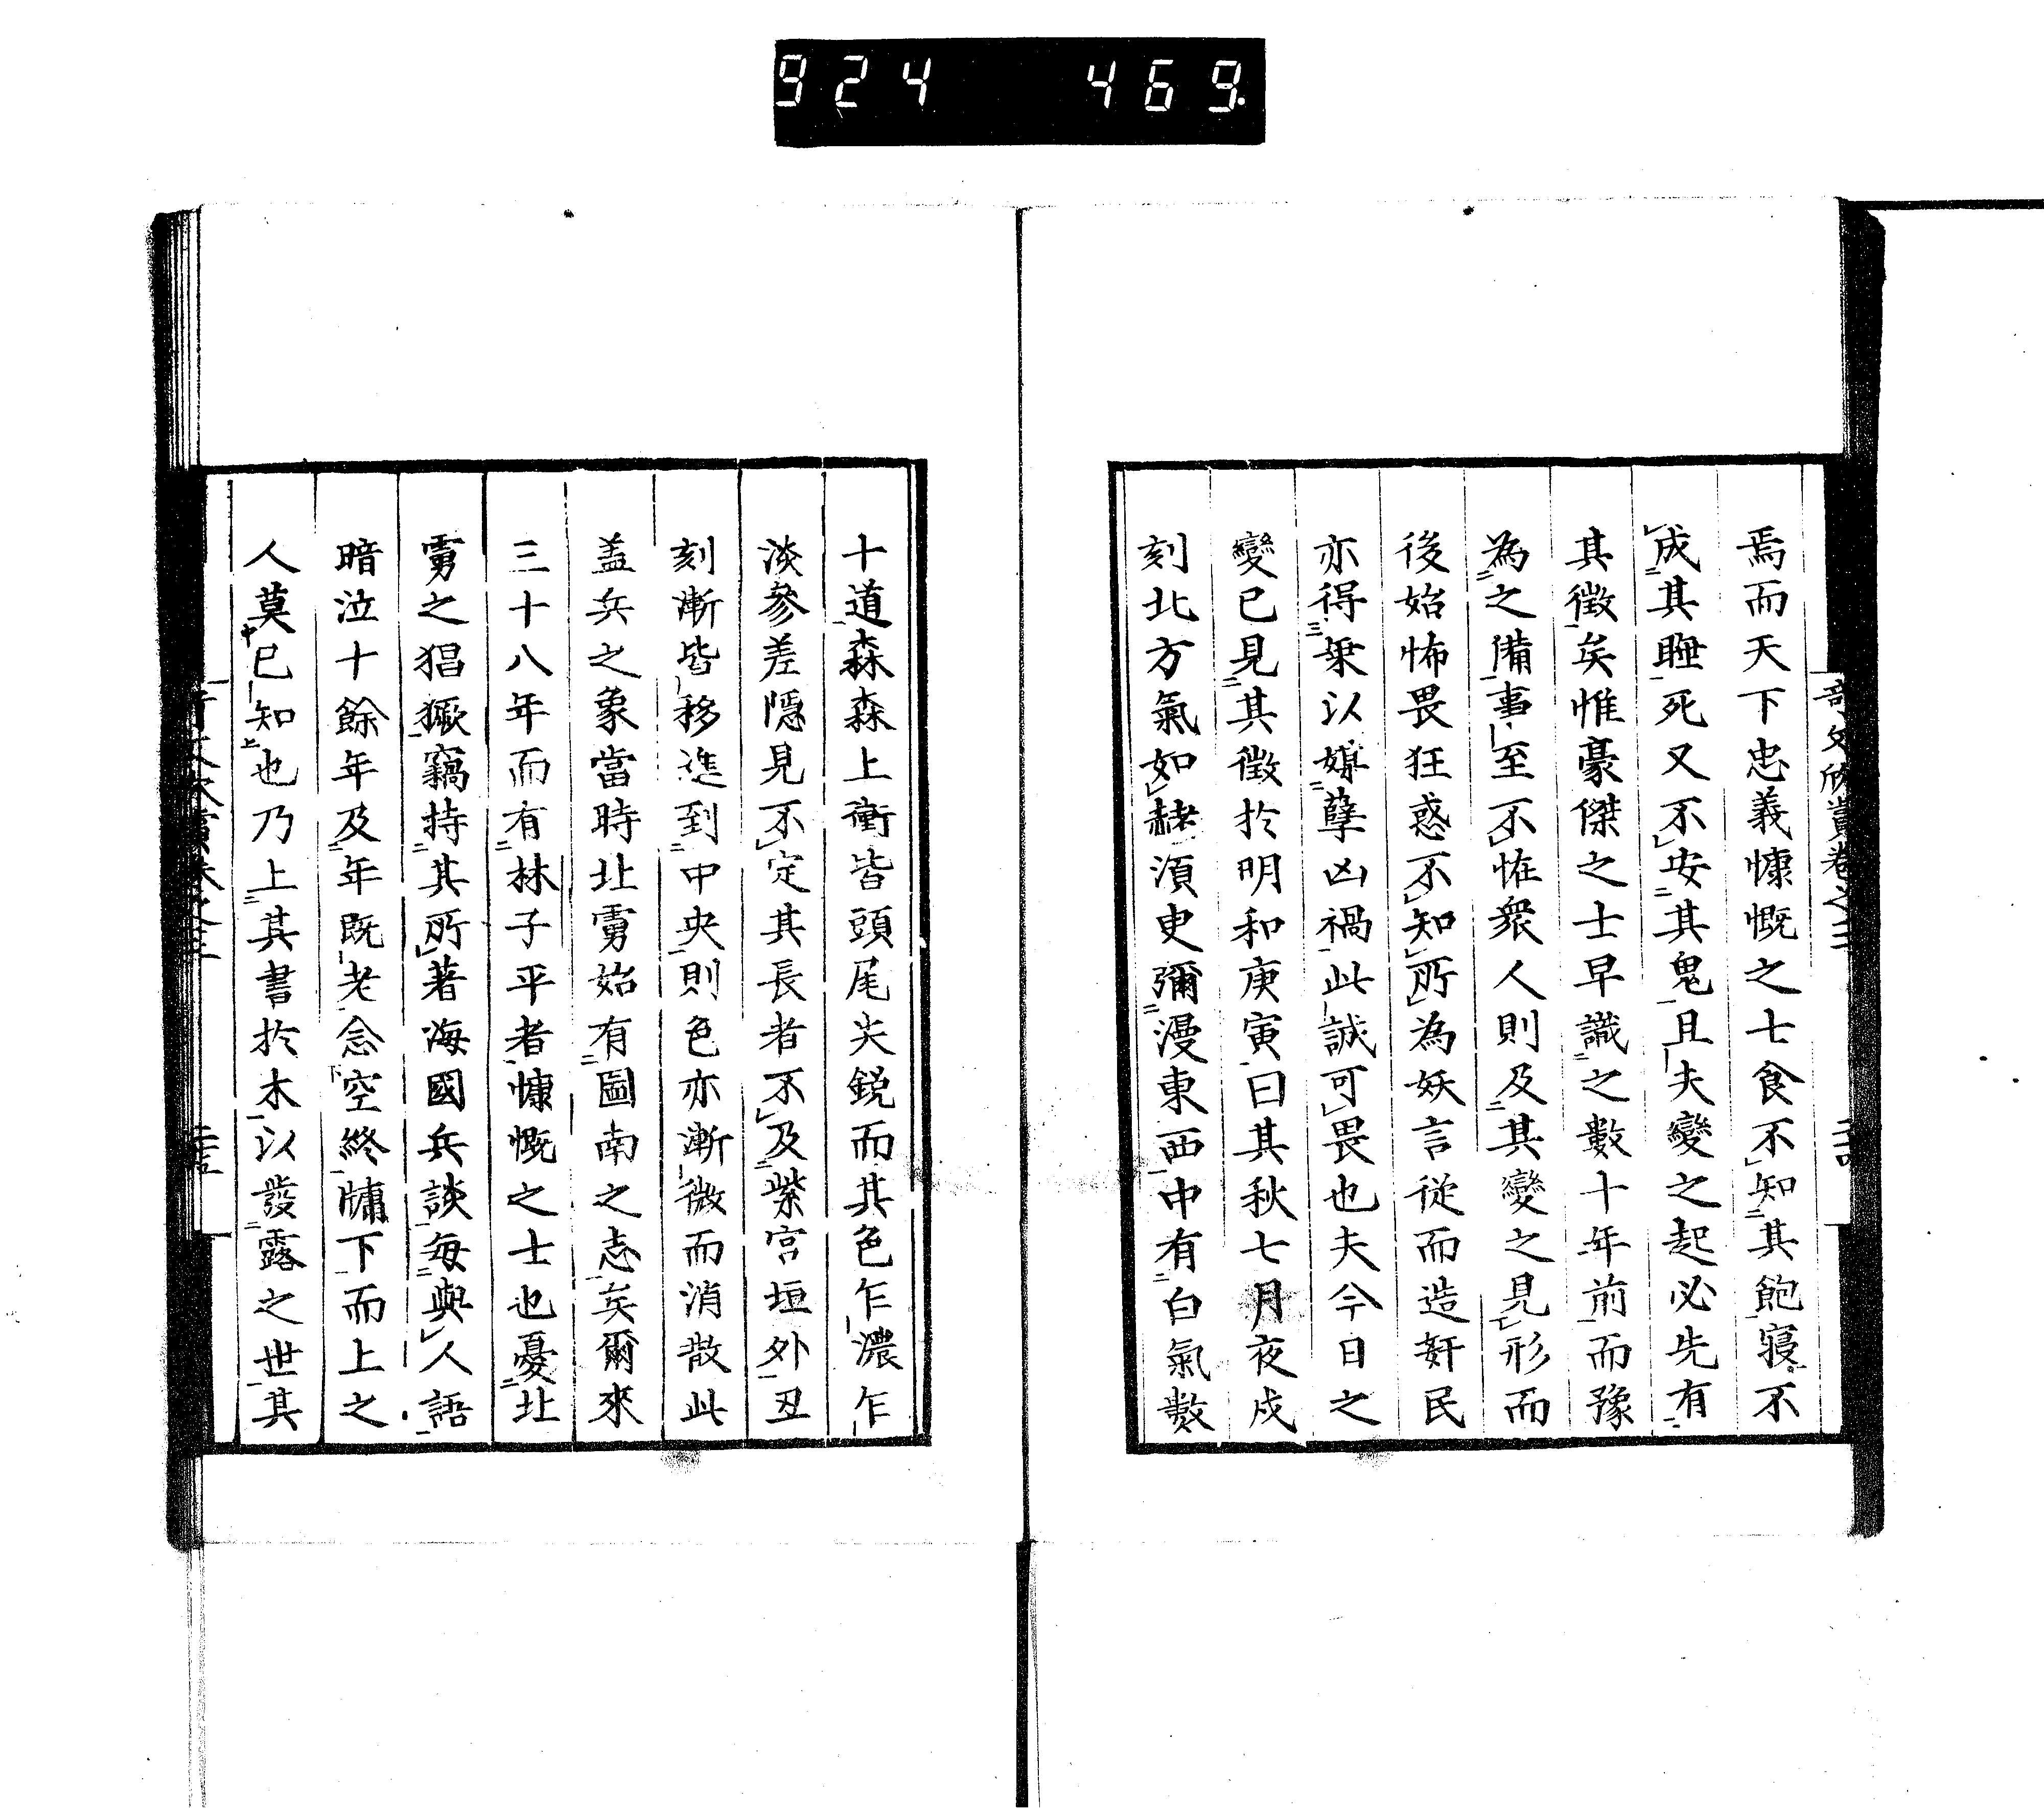 924 469
奇文欣賞卷之三
焉而天下忠義慷慨之七食不知其飽寢不
成其睡死又不安其鬼且夫變之起必先有
其徵矣惟豪傑之士早識之數十年前而豫
為之備事至不恠衆人則及其變之見形而
後始怖畏狂惑不知所為妖言從而造奸民
亦得乗以媒孽凶禍此誠可畏也夫今日之
變已見其徵於明和庚寅曰其秋七月夜戍
刻北方氣如赭湏臾彌漫東西中有白氣数
十道森森上衝皆頭尾尖銳而其色乍濃乍
淡參差隱見不定其長者不及紫宮垣外丑
刻漸皆移進到中央則色亦漸微而消散此
盖兵之象當時北虜始有圖南之志矣爾來
三十八年而有林子平者慷慨之士也憂北
虜之猖獗竊持其所著海國兵談每與人語
暗泣十餘年及年既老念空終牖下而上之
人莫已知也乃上其書於木以發露之世其